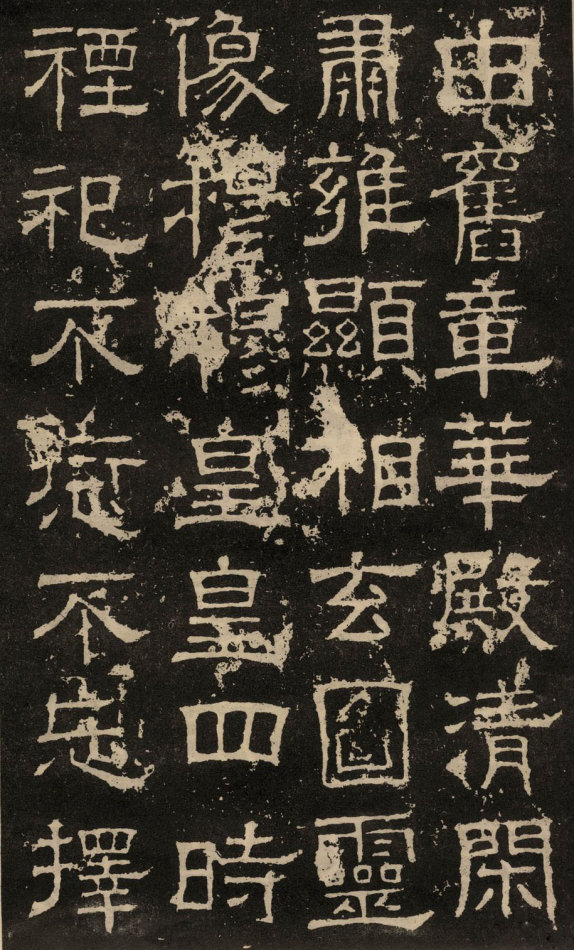 申舊章華殿清閑
肅雍顯相玄圖靈
像穆穆皇皇四時
禋祀不愆不忘擇